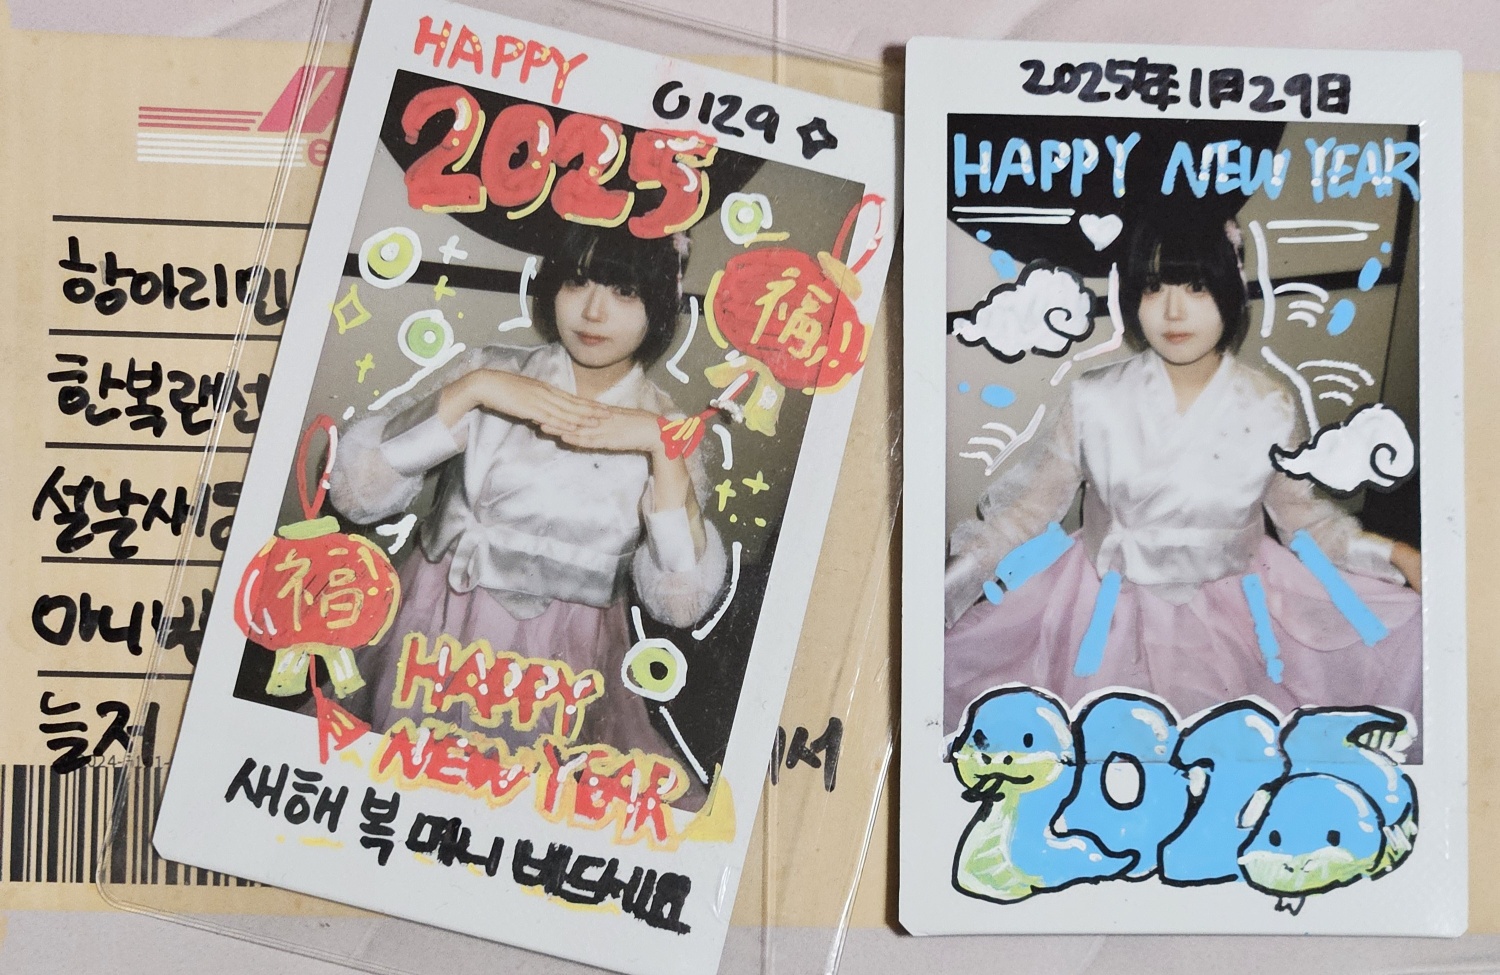 항아리
한복랜선
설날새
마니
늘저
서
HAPPY
0129
2025
福!
福!
HAPPY
NEW YEAR
새해 복 마니 베드세요
2025年1月29日
HAPPY NEW YEAR
2025